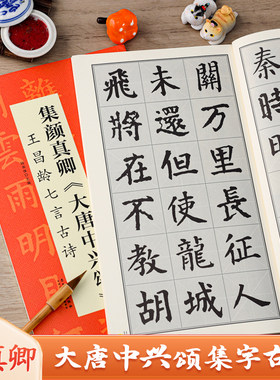 秦時
關万里長征人
未還但使龍城
飛將在不教胡
集颜真卿《大唐中兴颂》
王昌龄七言古诗
離
雲雨明月
真卿
大唐中兴颂集字古